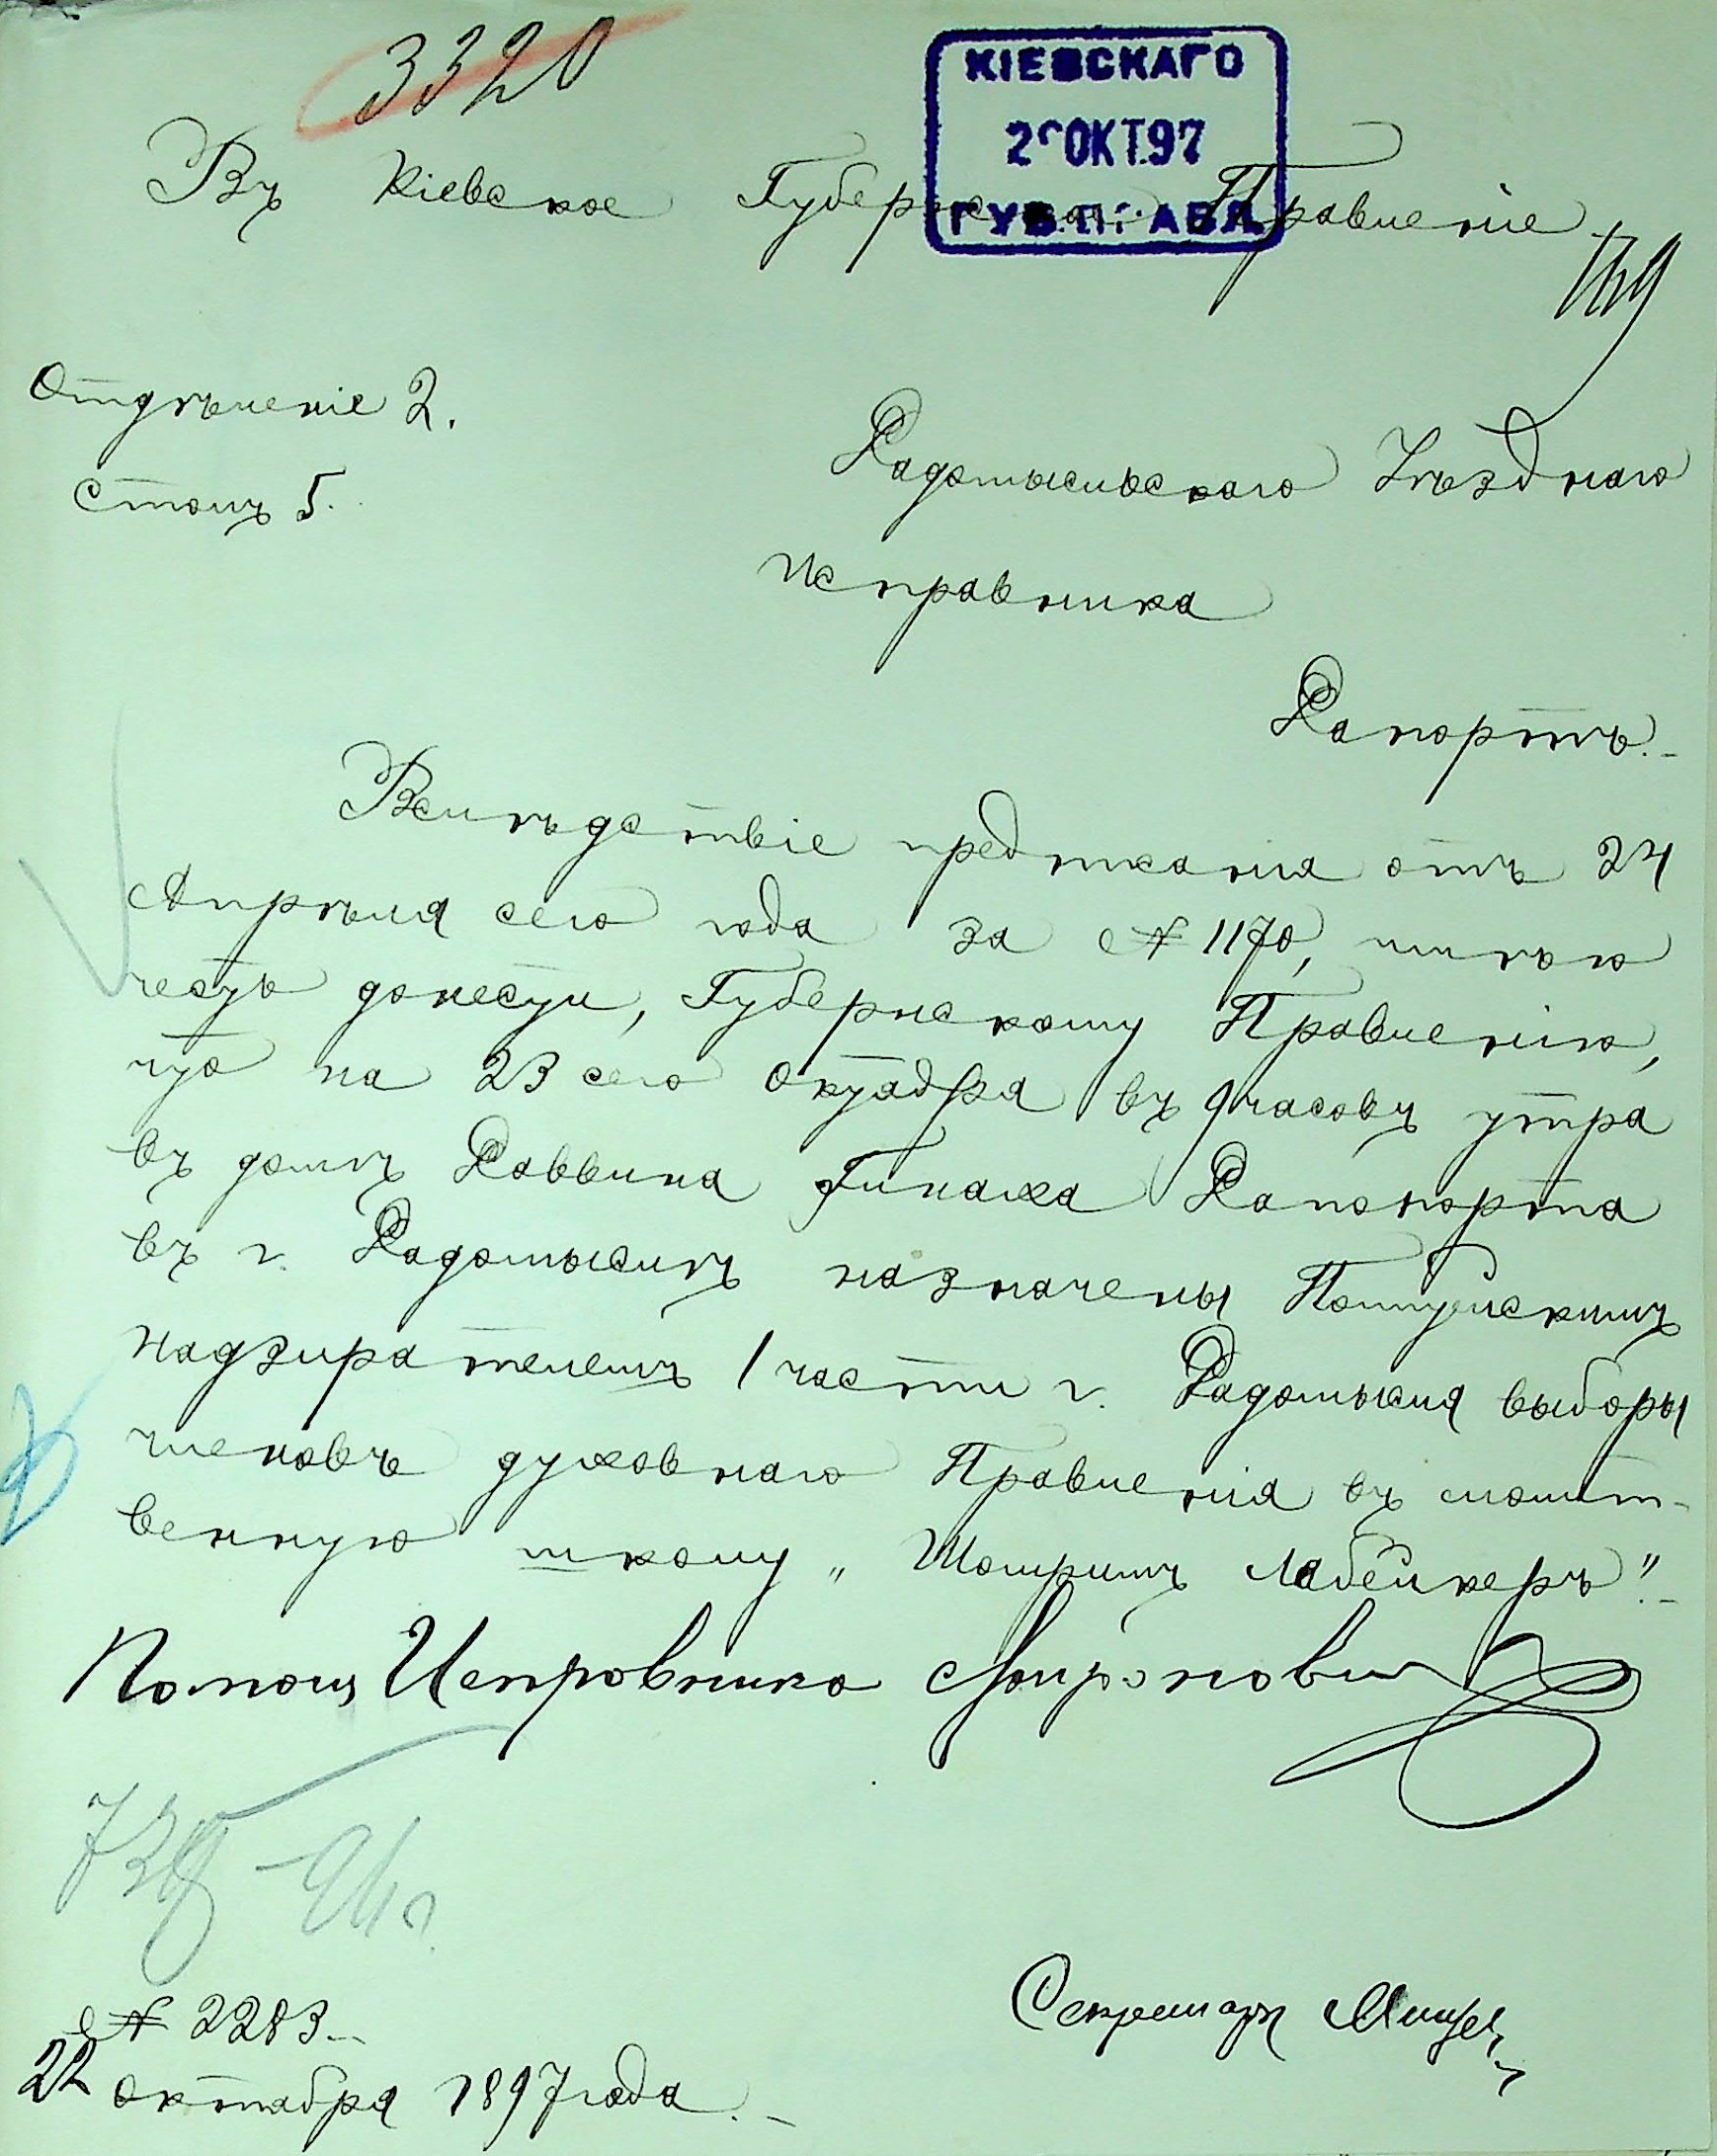 3320
КІЕВСКАГО
ОКТ.97
ГУБ.ПРАВЛ.
Въ Кіевское Губернское Правленіе.
Отдѣленіе 2.
Столъ 5.
Радомысльскаго Уѣзднаго
Исправника
Рапортъ.
Вслѣдствіе предписанія отъ 24
Апрѣля сего года за № 1170, имѣю
честь донести, Губернскому Правленію,
что на 23 сего Октября въ 9 часовъ утра
въ домѣ Раввина Пинхаса Рапопорта
въ г. Радомыслѣ назначены Полицейскимъ
надзирателемъ 1 части г. Радомысля выборы
членовъ духовнаго Правленія въ молит-
венную школу „Шомримъ Лабейкеръ".
Помощ Исправника
№ 2283.
22 октября 1897 года.
Секретарь